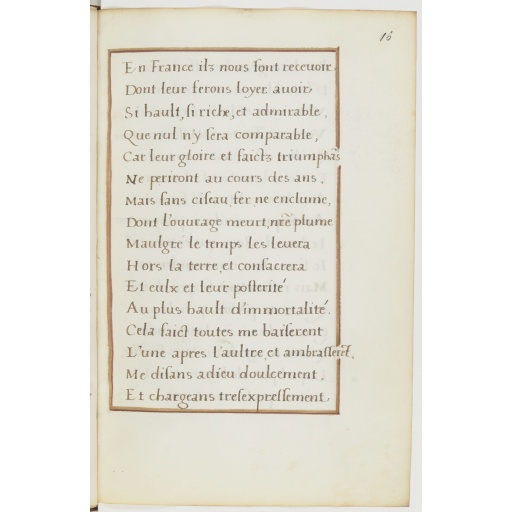 16
En France ilz nous font recevoir
Dont leur ferons loyer avoir
Si hault, si riche, et admirable,
Que nul n'y sera comparable,
Car leur gloire et faictz triumphãs
Ne periront au cours des ans.
Mais sans ciseau, fer ne enclume,
Dont l'ouurage meurt, nr̃e plume
Maulgré le temps les leuera
Hors la terre, et consacrera
Et eulx et leur posterité
Au plus hault d'immortalité.
Cela faict toutes me baiserent
L'une apres l'aultre, et ambrasserẽt,
Me disans adieu doulcement.
Et chargeans tresexpressement